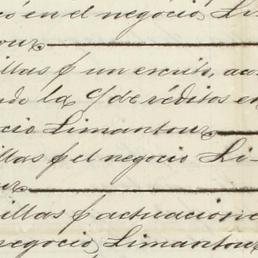 en el negocio Liman-
tour
illas p un escrito, aco
do la c/ de réditos en
cio Limantour
illas p el negocio Li-
ur
illas p actuacione
negocio Limantour